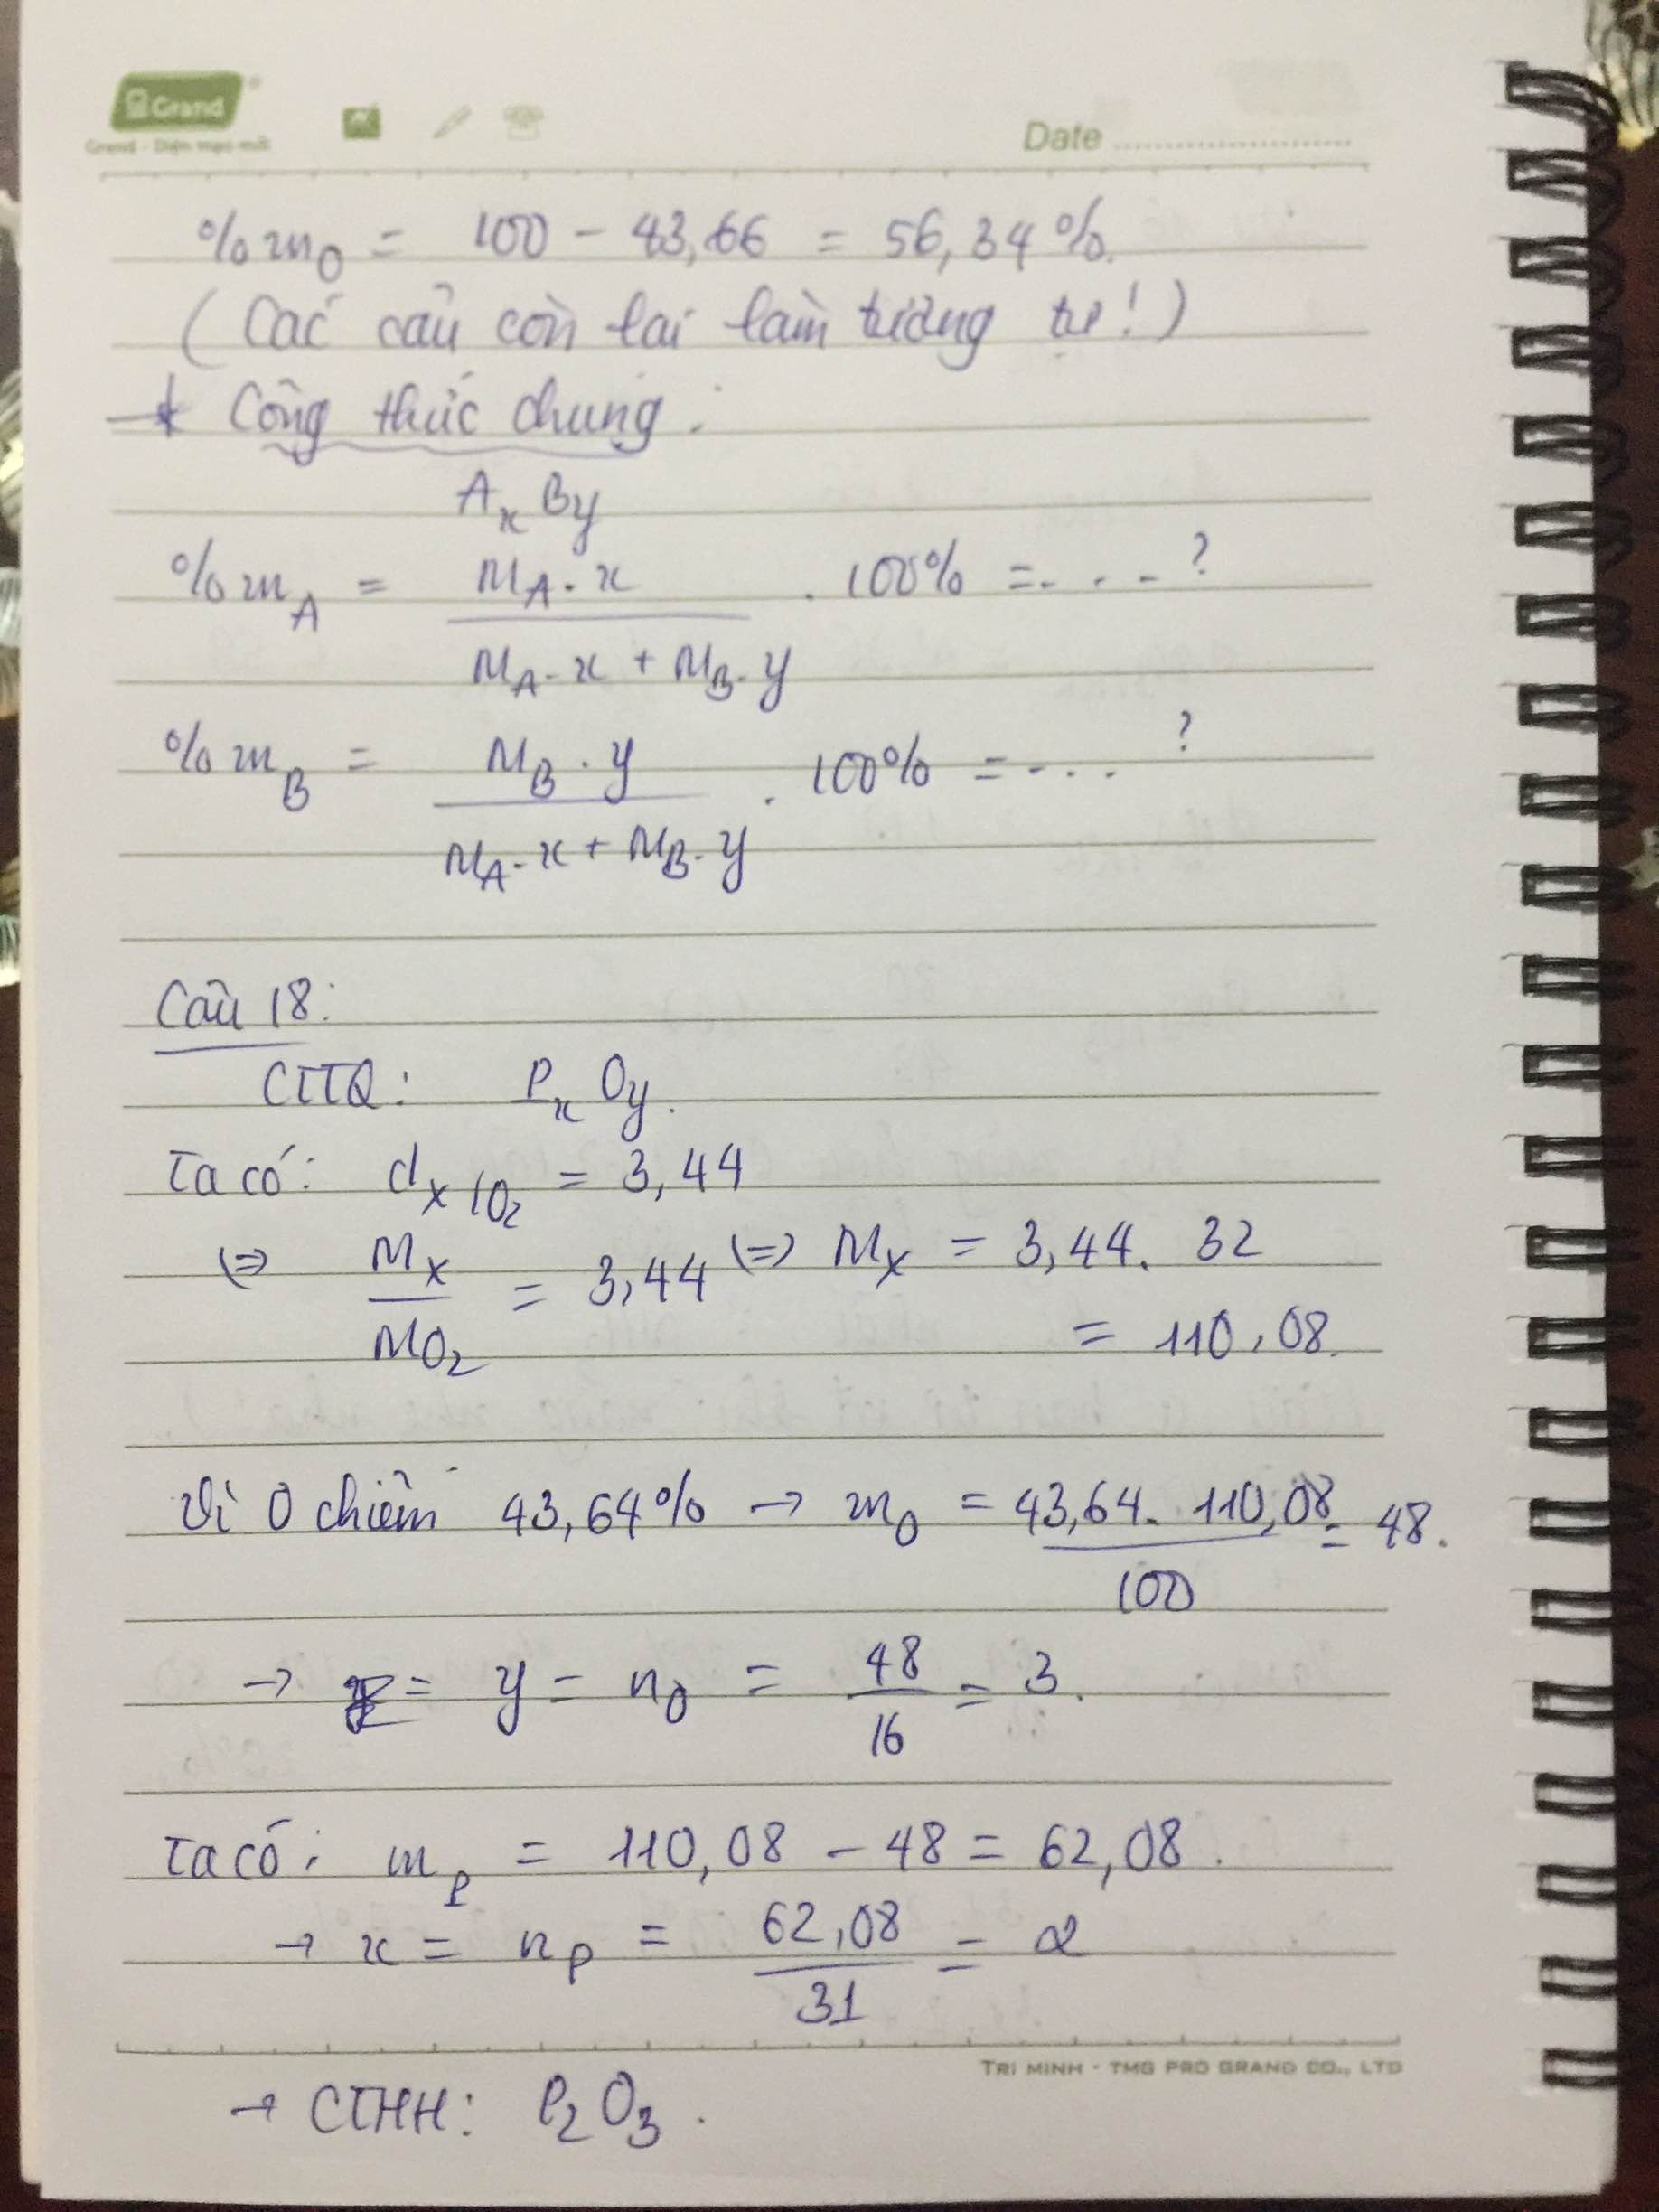 Grand
Grand - Diện mạo mới
Date
%mO = 100 - 43,66 = 56,34%.
(Các câu còn lại làm tương tự!)
* Công thức chung:
AxBy
%mA = MA.x / MA.x + MB.y . 100% = ... ?
%mB = MB.y / MA.x + MB.y . 100% = ... ?
Câu 18:
CTTQ: PxOy.
Ta có: dX/O2 = 3,44
(=) MX / MO2 = 3,44 (=) MX = 3,44. 32
= 110,08.
Vì O chiếm 43,64% → mO = 43,64. 110,08 / 100 = 48.
→ y = nO = 48 / 16 = 3.
Ta có: mP = 110,08 - 48 = 62,08.
→ x = nP = 62,08 / 31 = 2
TRI MINH - TMG PRO GRAND CO., LTD
→ CTHH: P2O3.